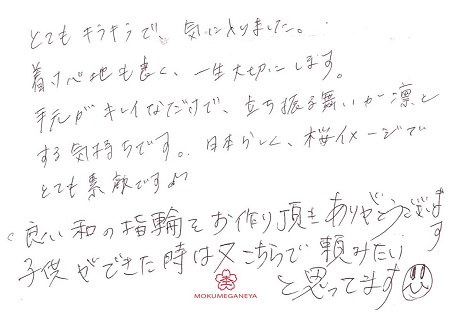 とてもキラキラで、気に入りました。
着け心地も良く、一生大切にします。
手元がキレイなだけで、立ち振る舞いが凛と
する気持ちです。日本らしく、桜イメージで
とても素敵です♪
良い和の指輪をお作り頂きありがとうございます
子供ができた時は又こちらで頼みたい
と思ってます
MOKUMEGANEYA